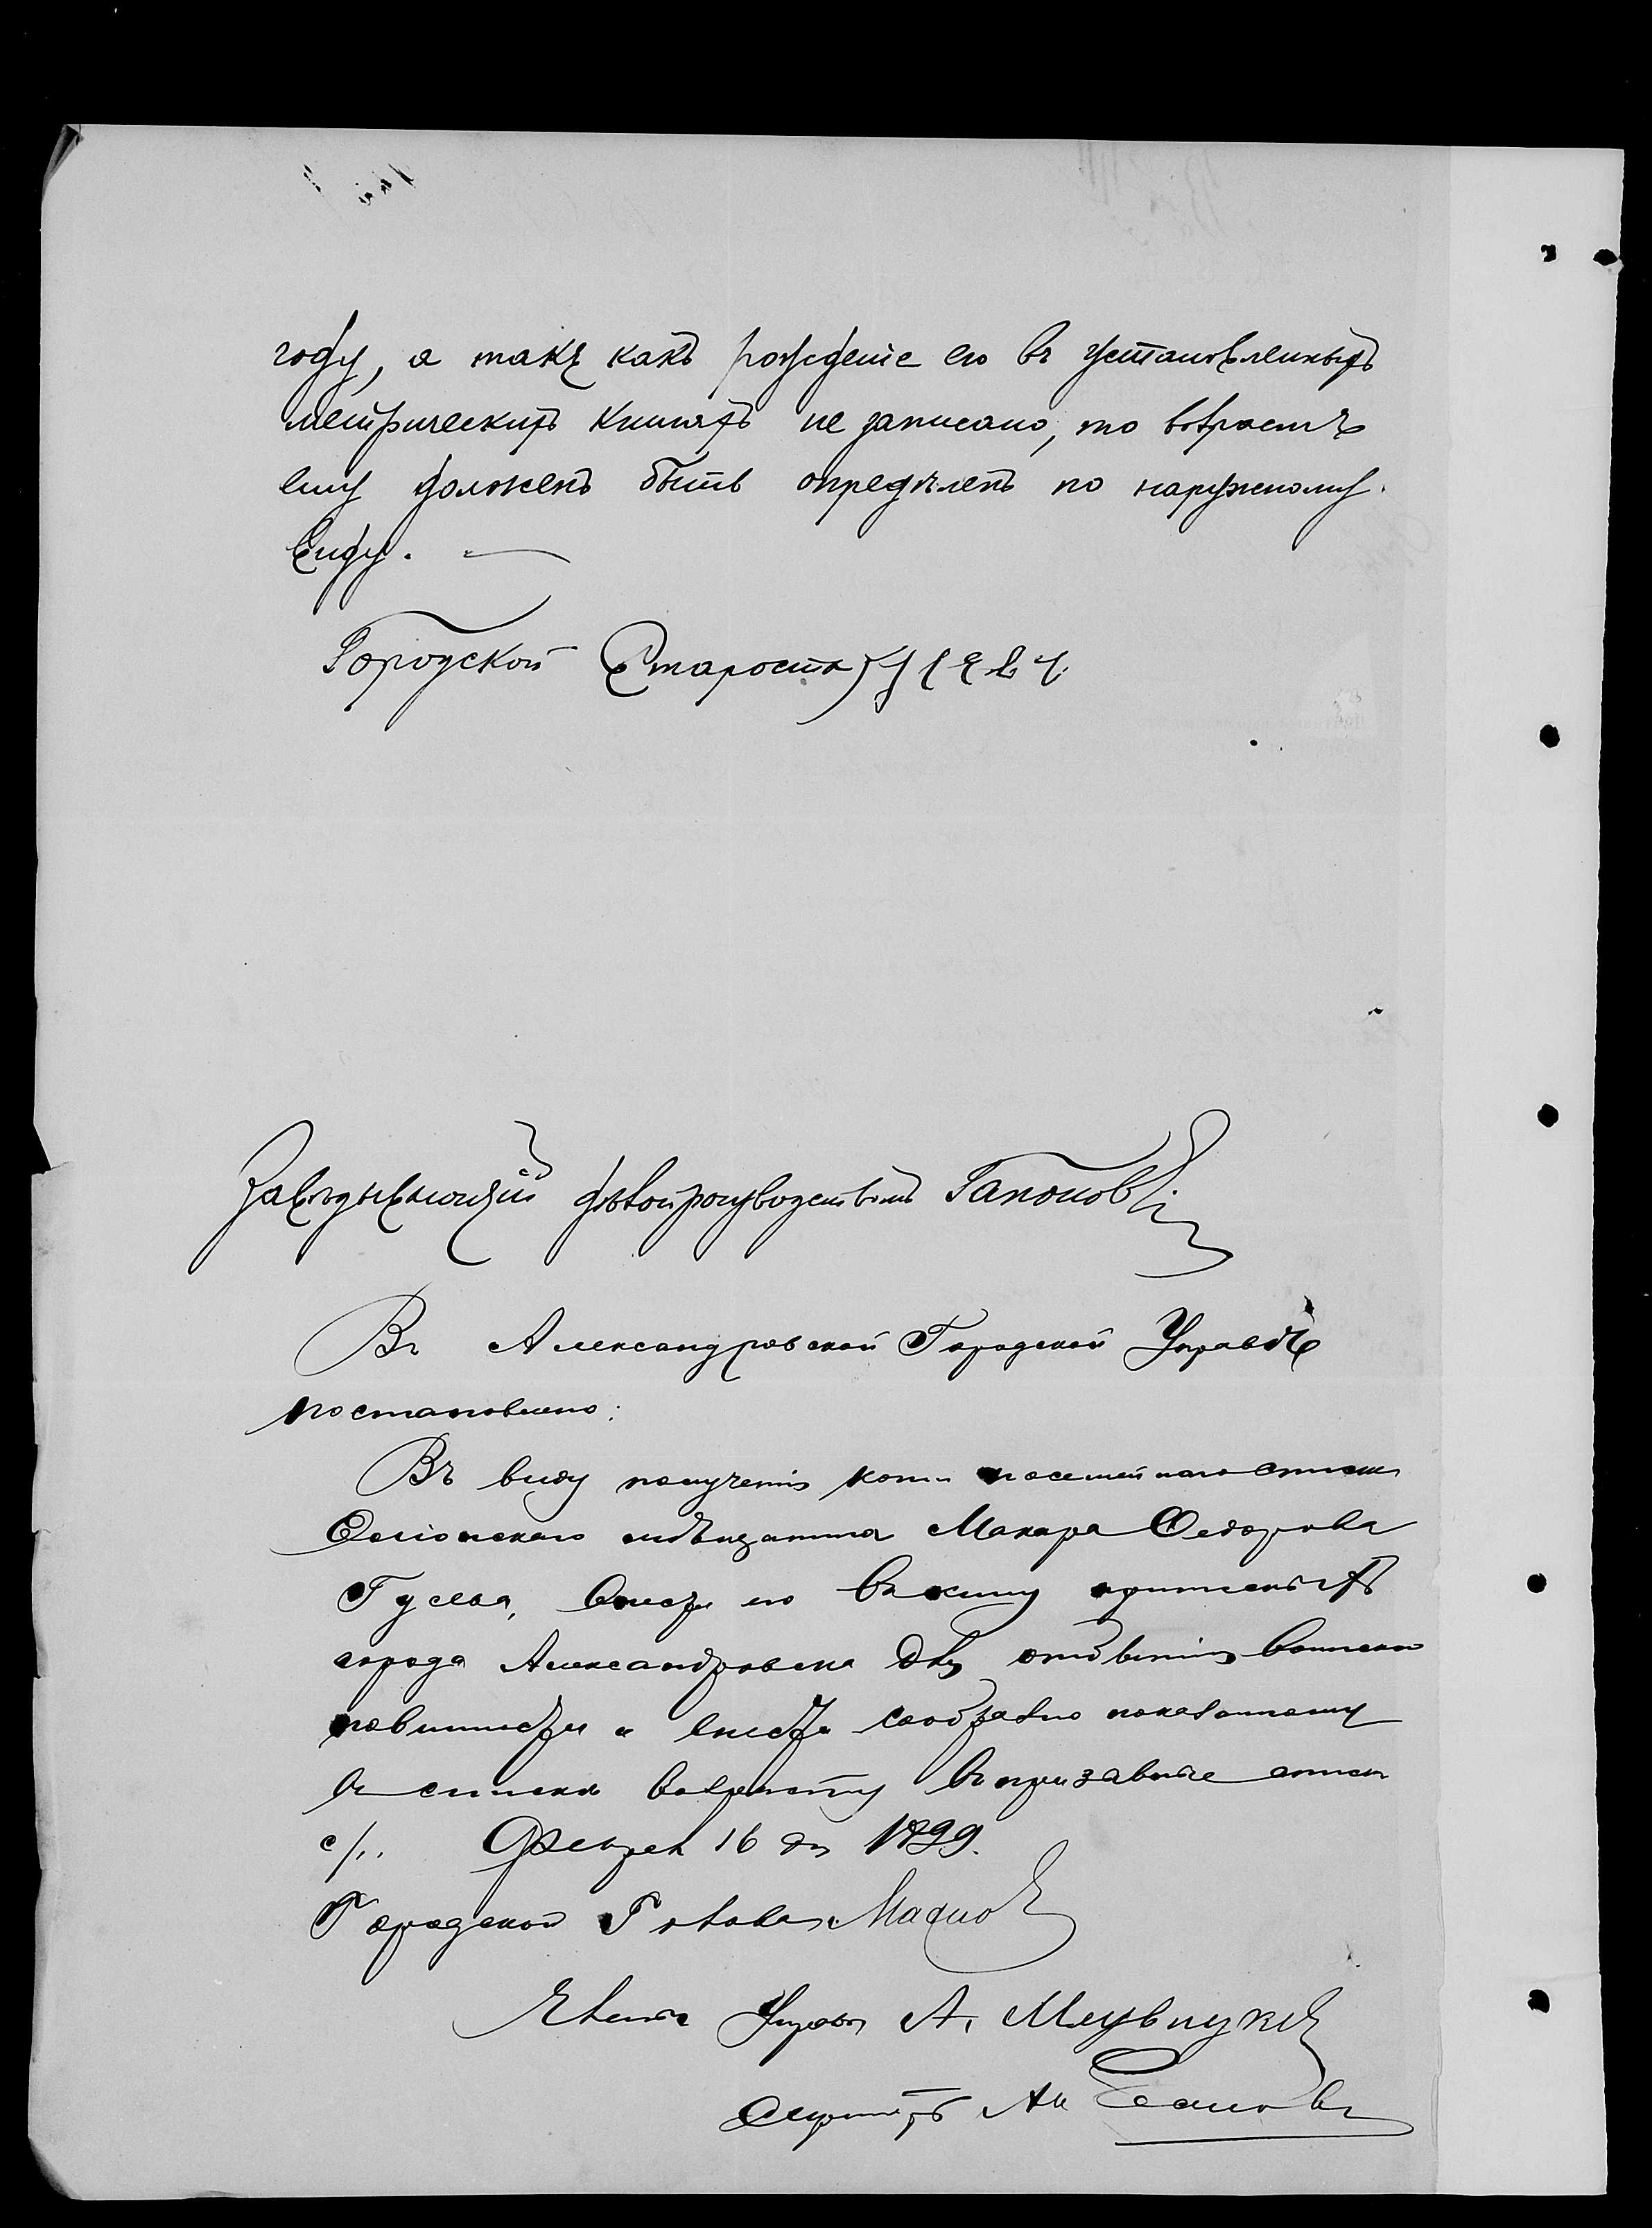 году, а такъ какъ рожденіе его въ установленныхъ
метрическихъ книгахъ не записано, то возрастъ
ему долженъ быть опредѣленъ по наружному
виду. —
Городской Староста
Завѣдывающій дѣлопроизводствомъ Гапоновъ
Въ Александровской Городской Управѣ
постановлено:
Въ виду полученія копіи посемейнаго списка
мѣщанина Макара Федорова
Гусева, внести его въ книгу приписныхъ
города Александровска для отбытія воинской
повинности и внести сообразно показанному
въ списке возрасту въ призывные списки
с/г. Февраля 16 дня 1899.
Городской Голова
Членъ Управы А.
Секретарь Ан